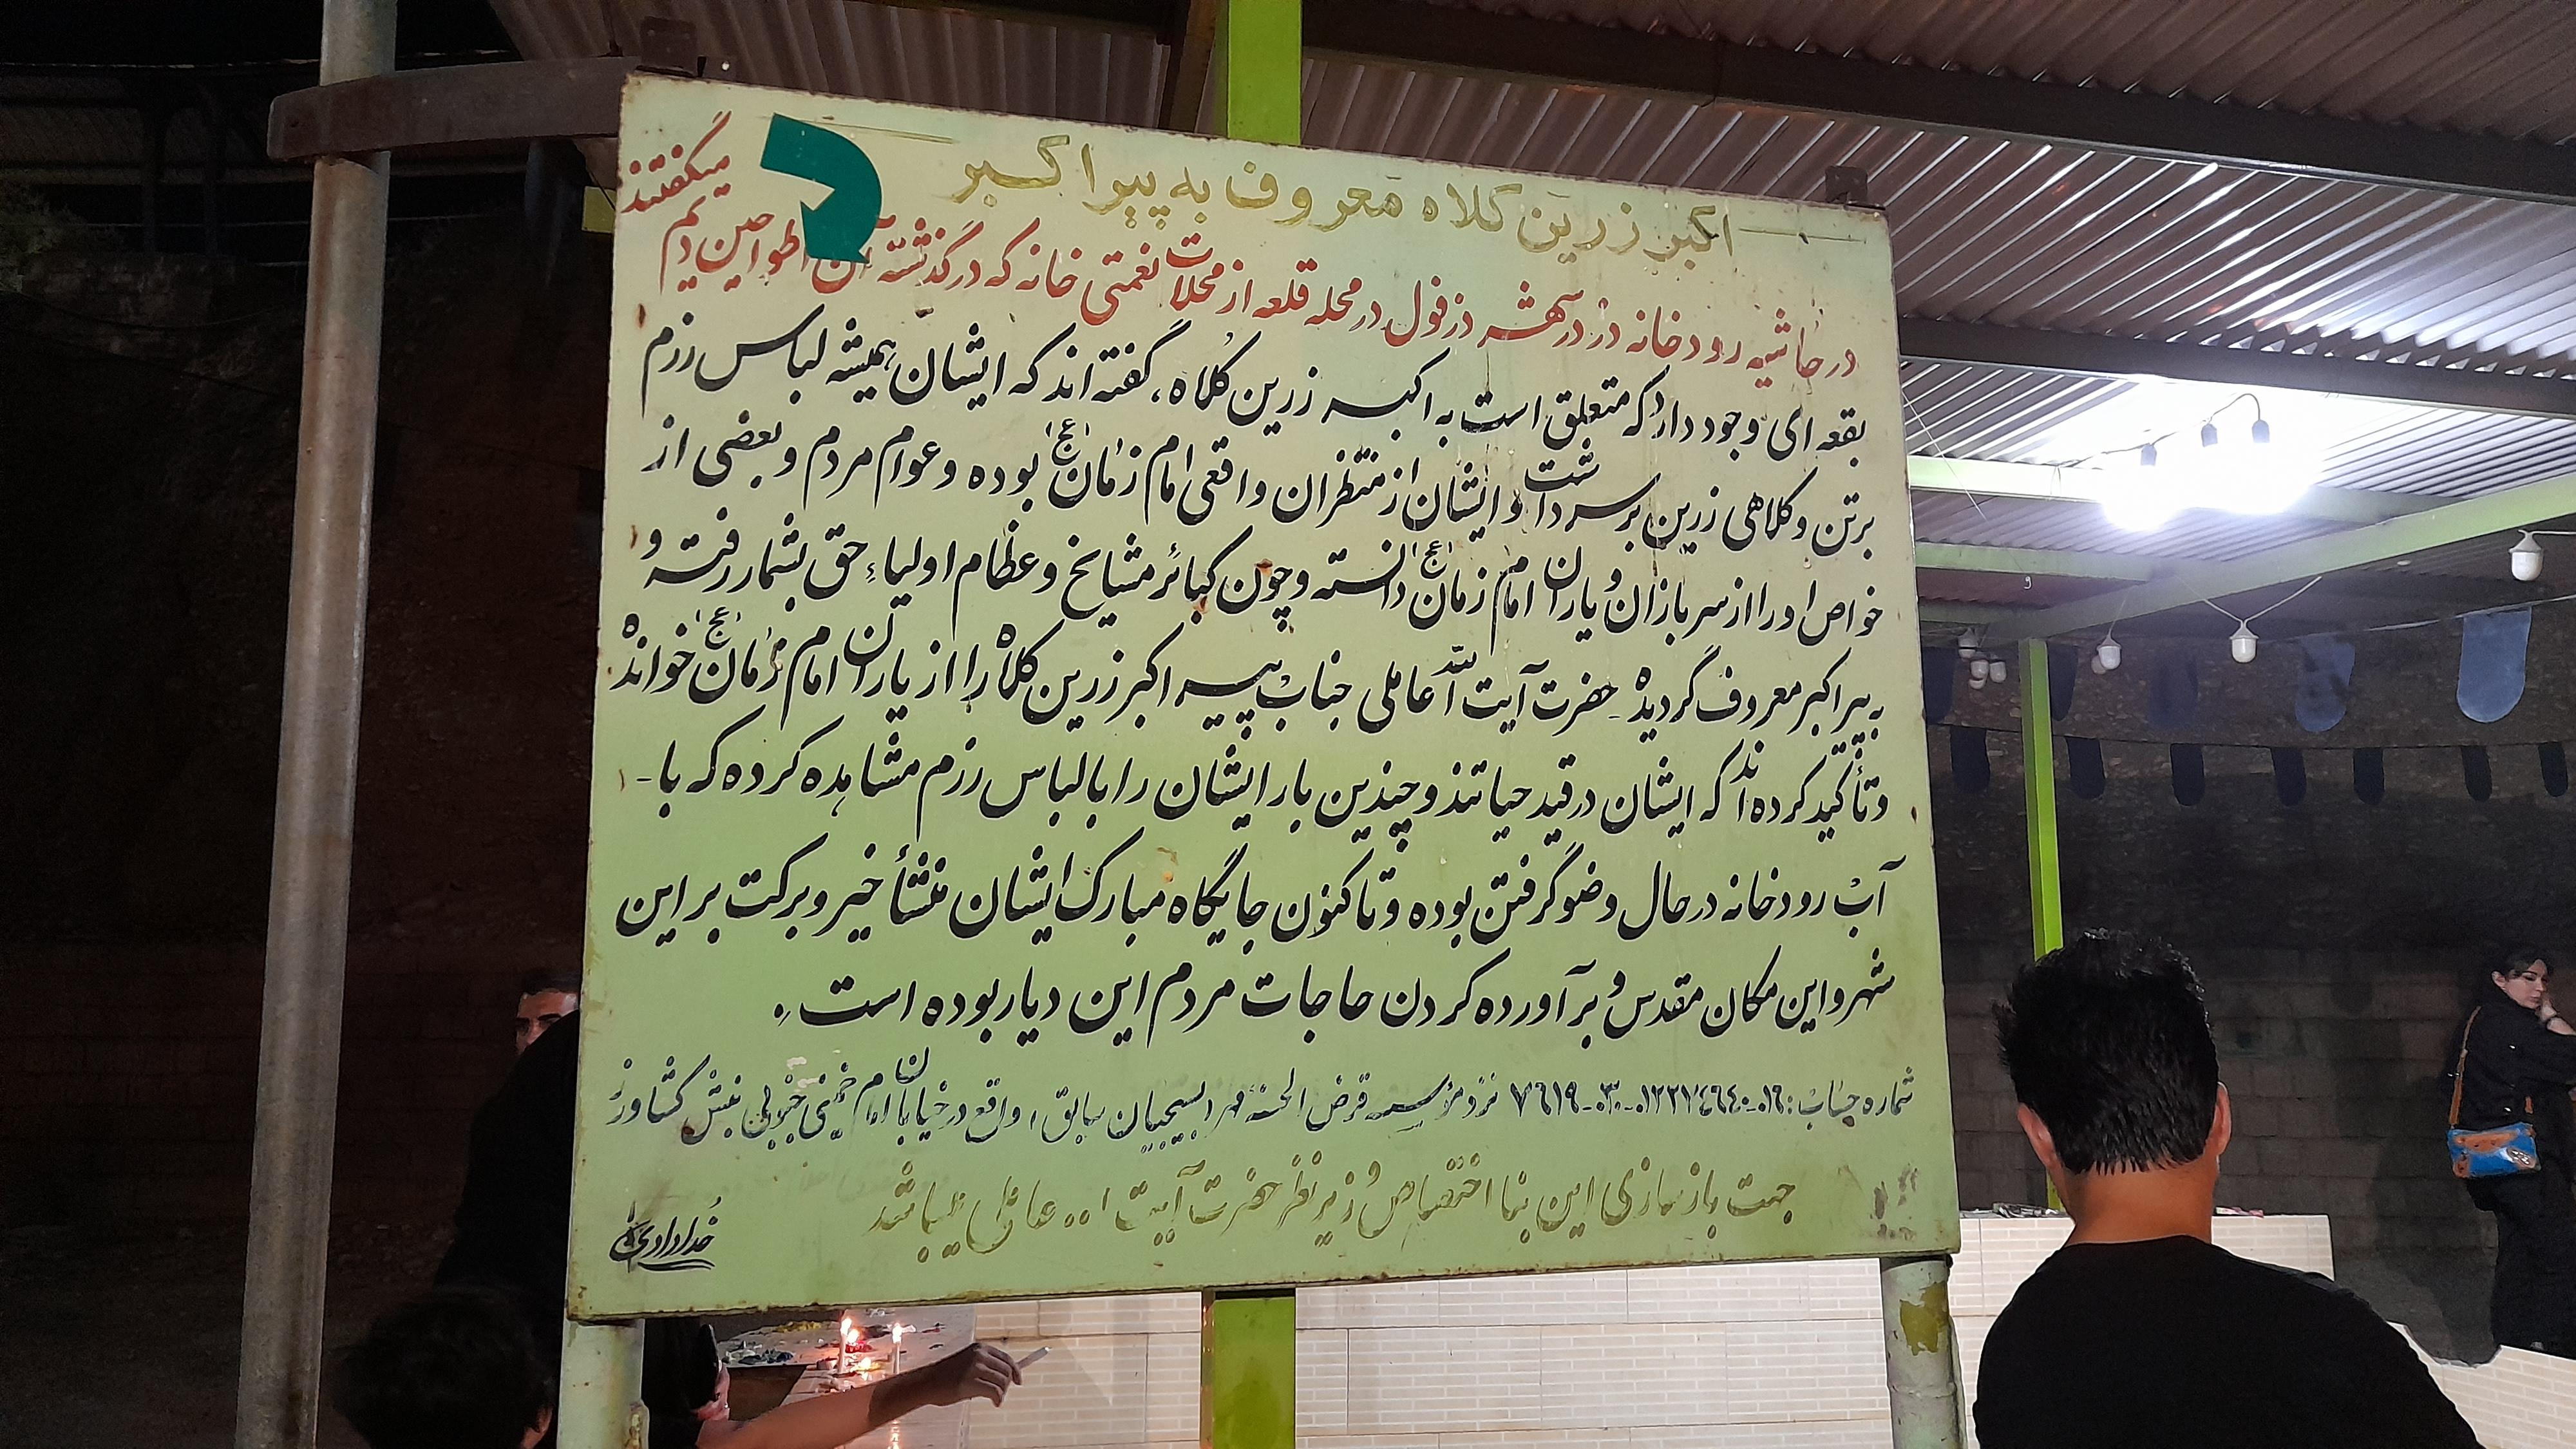 اکبر زرین کلاه معروف به پیر اکبر
در حاشیه رودخانه دز در شهر دزفول در محله قلعه از محلات نعمتی خانه که در گذشته آن را طواحین دیلم
میگفتند
بقعه ای وجود دارد که متعلق است به اکبر زرین کلاه، گفته اند که ایشان همیشه لباس رزم
برتن و کلاهی زرین بر سر داشت و ایشان از منتظران واقعی امام زمان (عج) بوده و عوام مردم و بعضی از
خواص او را از سربازان و یاران امام زمان (عج) دانسته و چون کبائر مشایخ و عظام اولیاءِ حق بشمار رفته و
به پیر اکبر معروف گردیده - حضرت آیت الله عاملی جناب پیر اکبر زرین کلاه را از یاران امام زمان (عج) خوانده
و تأکید کرده اند که ایشان در قید حیاتند و چندین بار ایشان را با لباس رزم مشاهده کرده که با -
آب رودخانه در حال وضو گرفتن بوده و تا کنون جایگاه مبارک ایشان منشأ خیر و برکت بر این
شهر و این مکان مقدس و برآورده کردن حاجات مردم این دیار بوده است.
شماره حساب: نزد مؤسسه قرض الحسنه مهر بسیجیان سابق، واقع در خیابان امام خمینی جنوبی نبش کشاورز
جهت بازسازی این بنا اختصاص و زیر نظر حضرت آیت ا.. عاملی میباشد
خدادادی